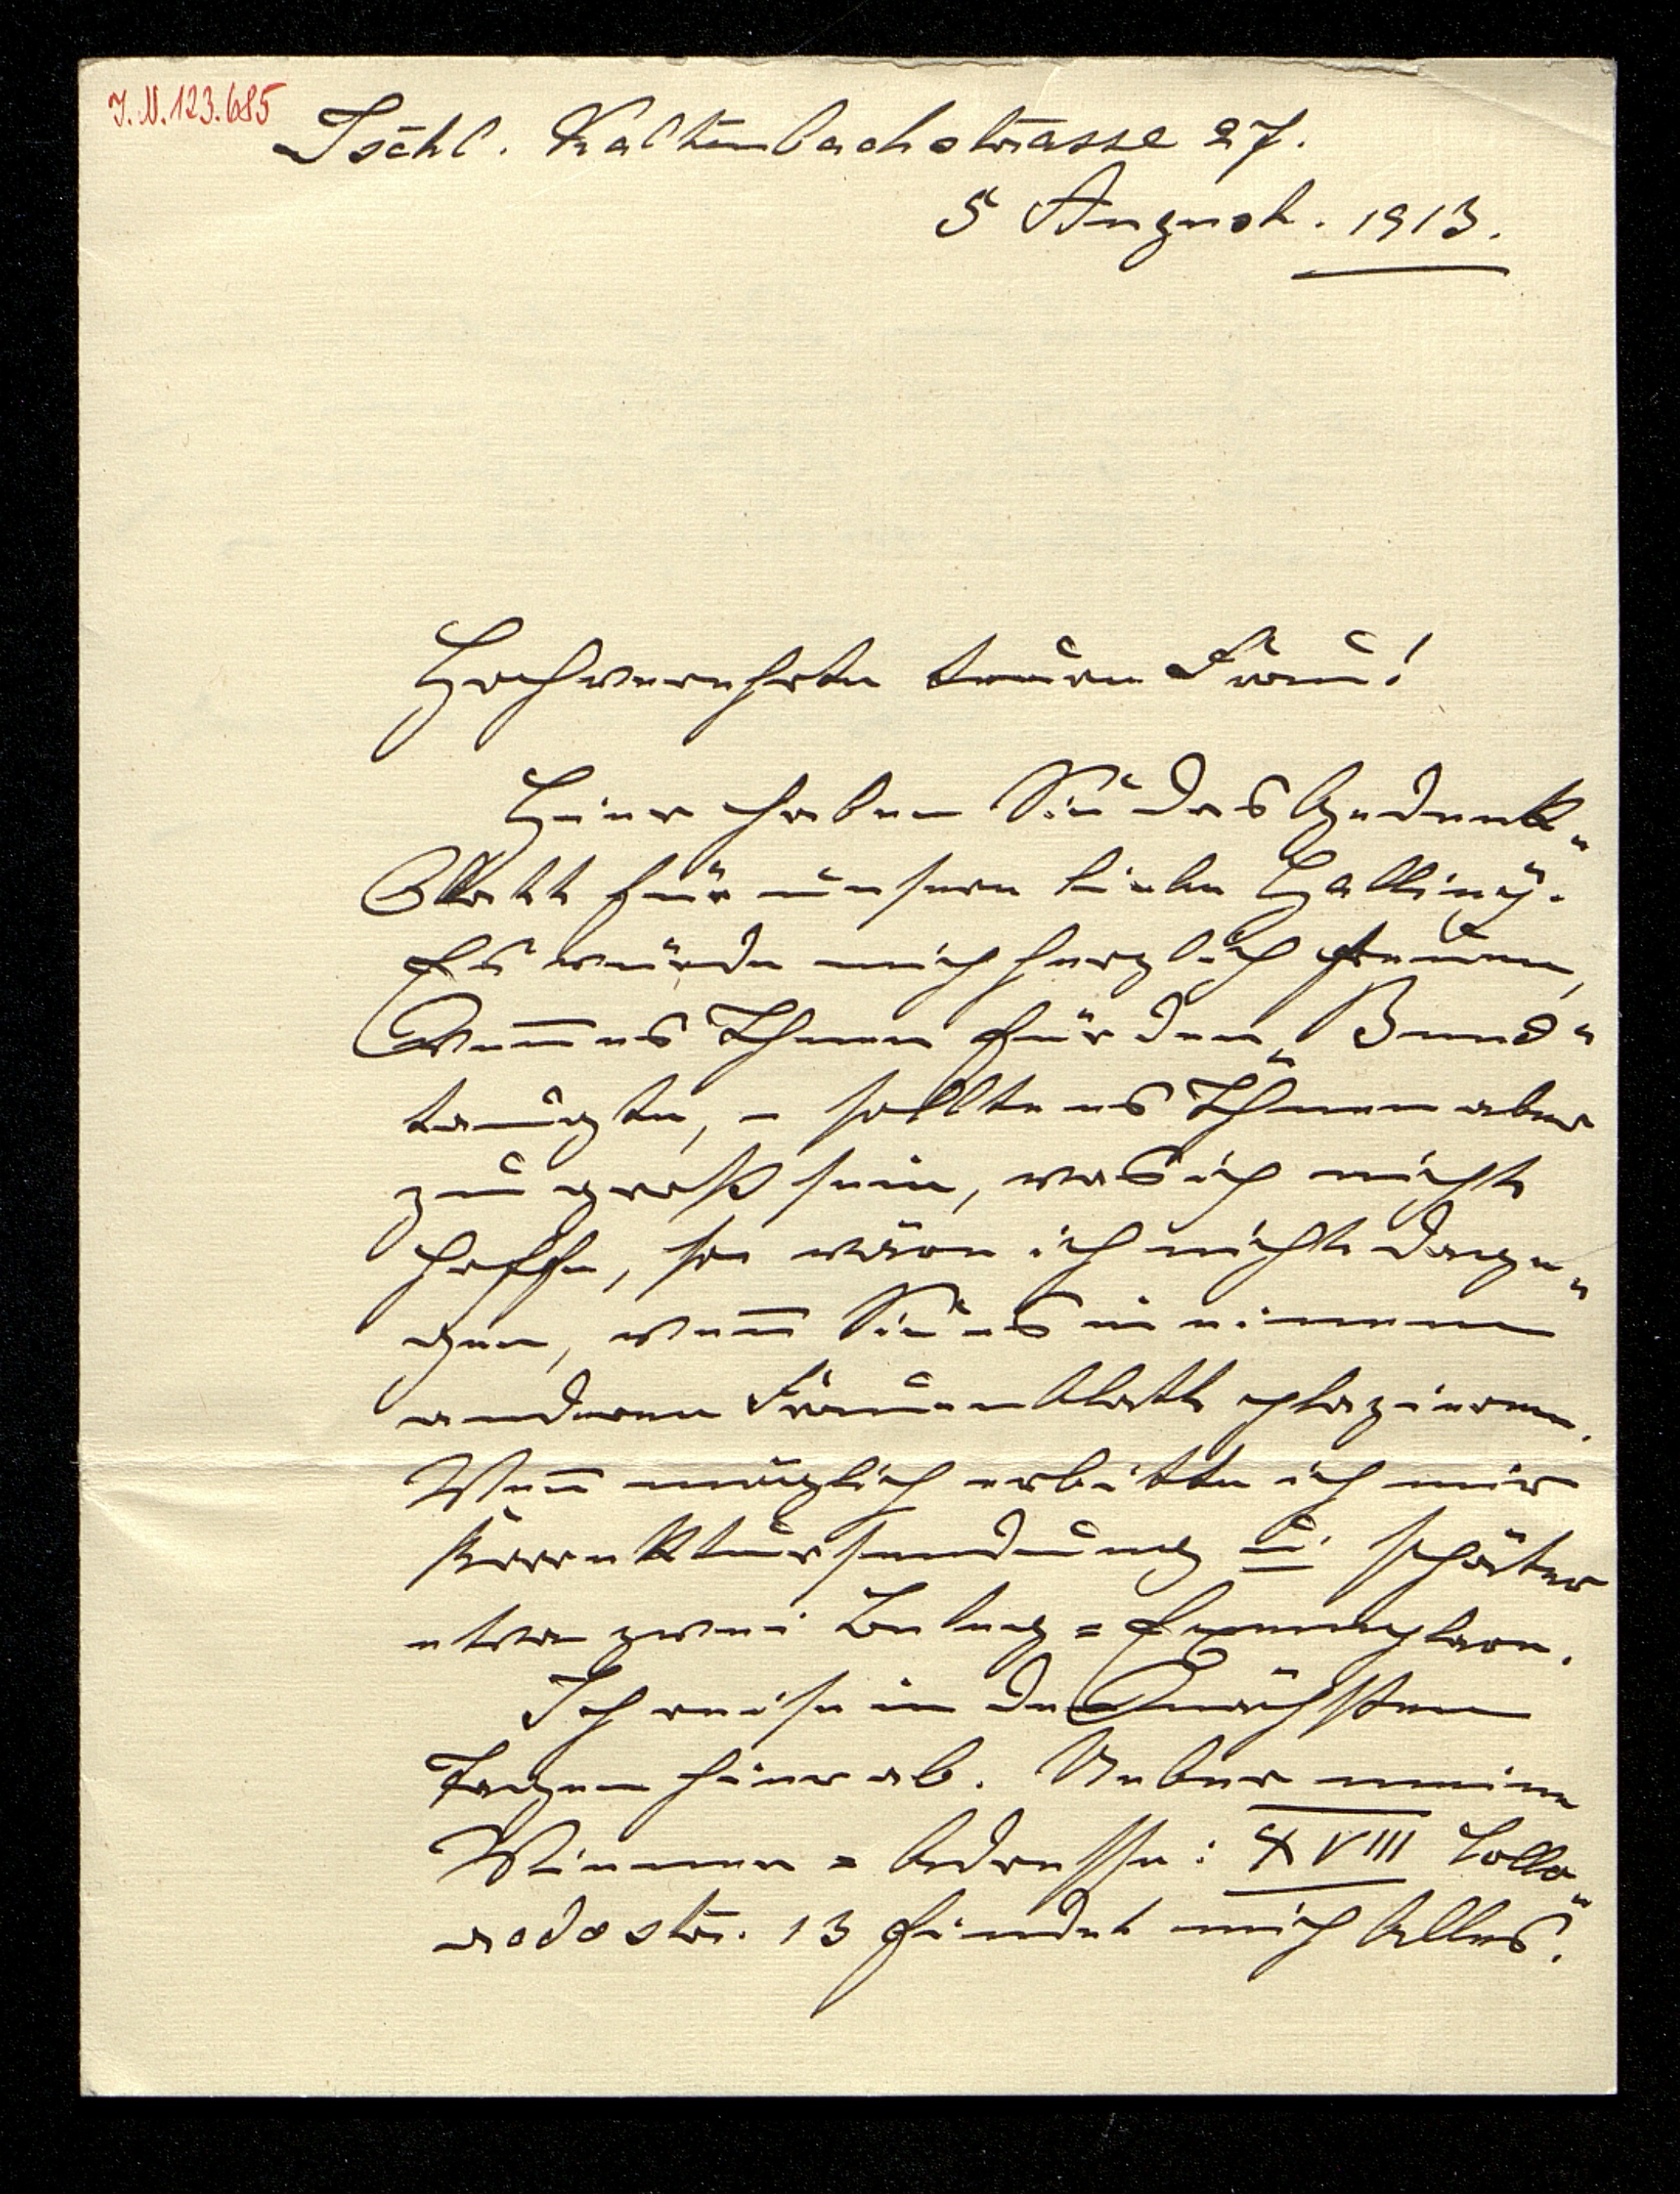 I.N. 123.685
Ischl. Kaltenbachstrasse 27.
5 August. 1913.
Hochverehrte teure Frau!
Hier haben Sie das Gedenk-
Blatt für unsere liebe
Es würde mich herzlich freuen,
Wenn es Ihnen für den „Bund“
taugte, – sollte es Ihnen aber
zu groß sein, was ich nicht
hoffe, so wäre ich nicht dage-
gen, wenn Sie es in einem
anderen Frauenblatt plazieren.
Wenn möglich erbitte ich mir
Korrektursendung u. später
etwa zwei Beleg=Exemplare.
Ich reise in den nächsten
Tagen hier ab. Ueber meine
Wiener=Adresse: XVIII Collo-
redostr. 13 findet mich Alles.